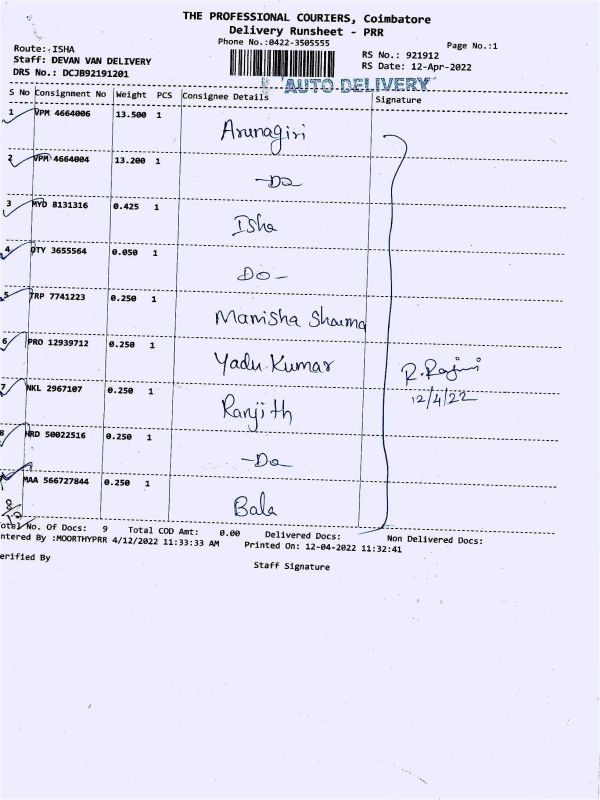 THE PROFESSIONAL COURIERS, Coimbatore
Delivery Runsheet - PRR
Phone No.:0422-3505555
Page No.:1
Route: ISHA
RS No.: 921912
Staff: DEVAN VAN DELIVERY
RS Date: 12-Apr-2022
DRS No.: DCJB92191201
AUTO DELIVERY
S No Consignment No Weight PCS Consignee Details Signature
1 VPM 4664006 13.500 1 Arunagiri
2 VPM 4664004 13.200 1 -Do
3 MYD 8131316 0.425 1 Isha
4 OTY 3655564 0.050 1 Do-
5 TRP 7741223 0.250 1 Manisha Sharma
6 PRO 12939712 0.250 1 Yadu Kumar
R.Rajini
12/4/22
7 NKL 2967107 0.250 1 Ranjith
8 HRD 50022516 0.250 1 -Do
MAA 566727844 0.250 1 Bala
otal No. Of Docs: 9 Total COD Amt: 0.00 Delivered Docs: Non Delivered Docs:
ntered By :MOORTHYPRR 4/12/2022 11:33:33 AM Printed On: 12-04-2022 11:32:41
erified By
Staff Signature